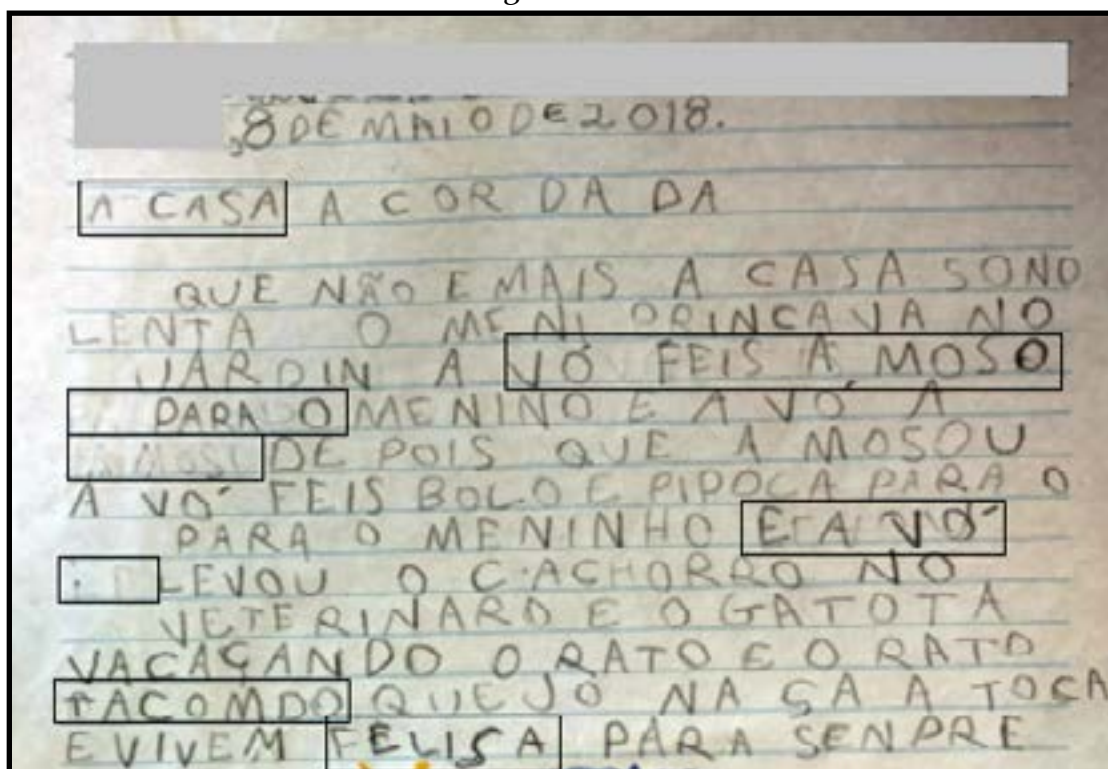 ,8 DE MAIO DE 2018.
A CASA A COR DA DA
QUE NÃO E MAIS A CASA SONO
LENTA O MENI PRINCAVA NO
JARDIN A VÓ FEIS A MOSO
PARA O MENINO E A VÓ A
DE POIS QUE A MOSOU
A VÓ FEIS BOLO E PIPOCA PARA O
PARA O MENINHO E A VÓ
LEVOU O CACHORRO NO
VETERINARO E O GATOTA
VACAÇANDO O RATO E O RATO
TACOMDO QUEJO NA SA A TOCA
E VIVEM FELISA PARA SENPRE